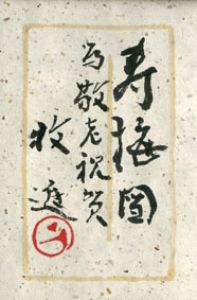 寿梅图
为敬老祝贺
牧進